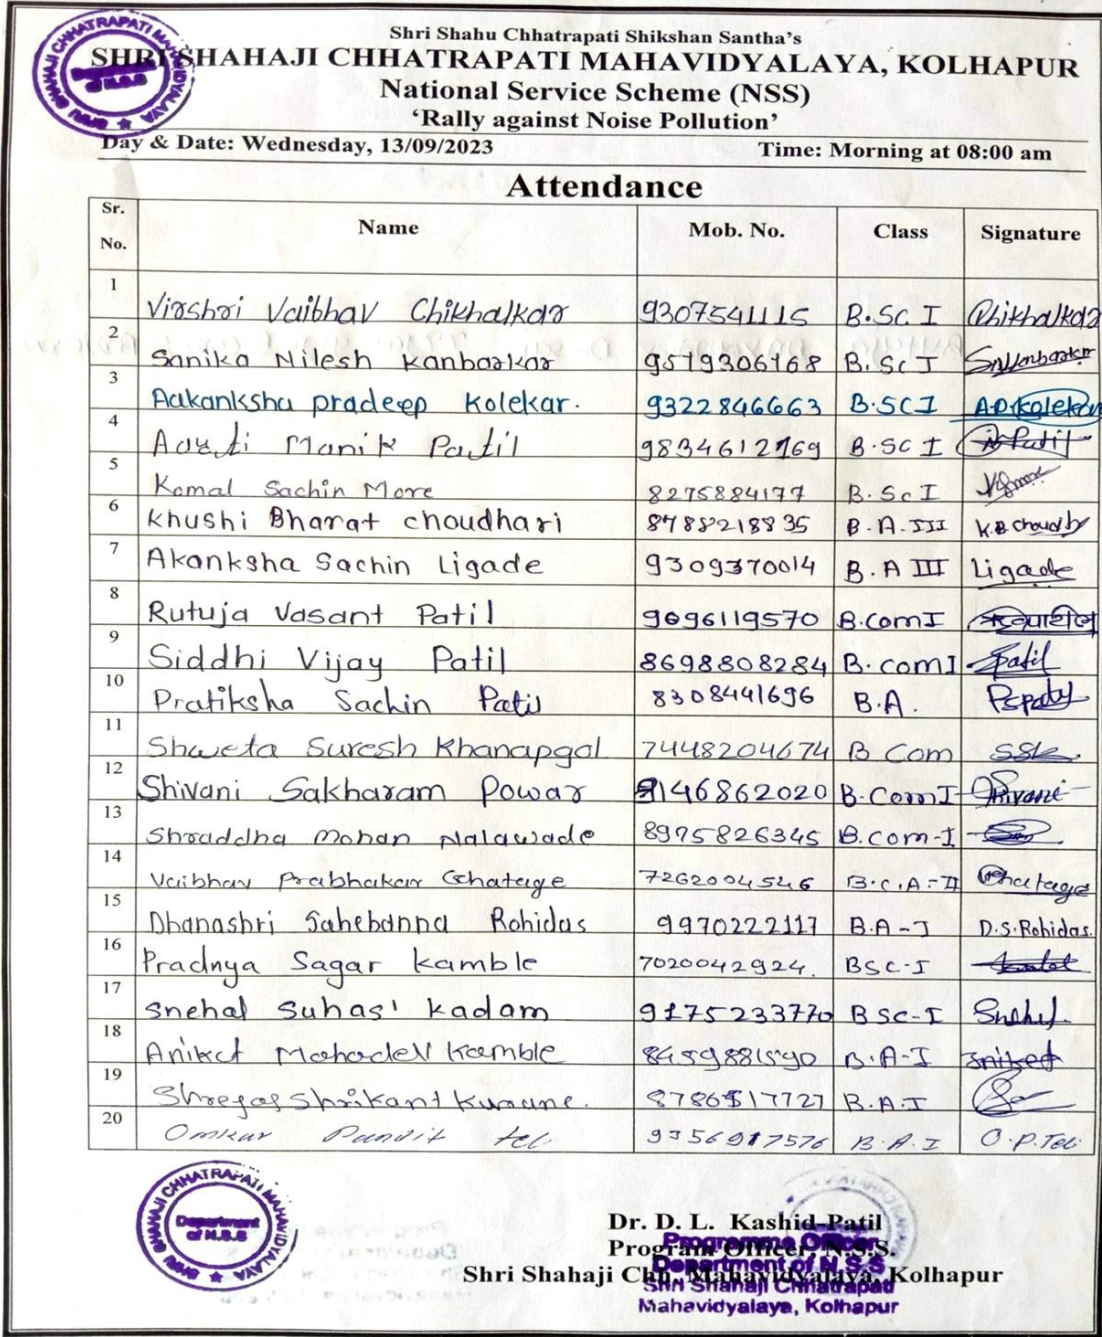 SHRI SHAHAJI CHHATRAPATI MAHAVIDYALAYA
Department
of N.S.S
Shri Shahu Chhatrapati Shikshan Santha's
SHRI SHAHAJI CHHATRAPATI MAHAVIDYALAYA, KOLHAPUR
National Service Scheme (NSS)
‘Rally against Noise Pollution’
Day & Date: Wednesday, 13/09/2023 Time: Morning at 08:00 am
Attendance
Sr. No. Name Mob. No. Class Signature
1 Virshri Vaibhav Chikhalkar 9307541115 B.Sc I Chikhalkar
2 Sanika Nilesh Kanbarkar B.Sc I
3 Aakanksha pradeep Kolekar. 9322846663 B.SC I A.P.Kolekar
4 Aarti Manik Patil 9834612769 B.SC I Patil
5 Komal Sachin More 8275884177 B.Sc I
6 Khushi Bharat choudhari 8788218835 B.A.III K.B choudhry
7 Akanksha Sachin Ligade 9309370014 B.A III Ligade
8 Rutuja Vasant Patil 9096119570 B.com I
9 Siddhi Vijay Patil 8698808284 B.com I Patil
10 Pratiksha Sachin Patil 8308441696 B.A. Pspatil
11 Shweta Suresh Khanapgol 7448204674 B Com SSK
12 Shivani Sakharam Powar 9146862020 B.Com I Shivani
13 Shraddha Mohan Nalawade 8975826345 B.Com-I
14 Vaibhav Prabhakar Ghatage 7262004546 B.C.A-II Ghatage
15 Dhanashri Sahebanna Rohidas 9970222117 B.A-I D.S.Rohidas.
16 Pradnya Sagar Kamble 7020042924. BSC-I
17 Snehal Suhas Kadam 9175233770 BSC-I Snehal
18 Aniket Mahadev Kamble 8459881590 B.A-I Aniket
19 Shreyas Shrikant Kurane. B.A.I
20 Omkar Pandit teli B.A.I O.P.Teli
SHRI SHAHAJI CHHATRAPATI MAHAVIDYALAYA
Department
of N.S.S
Dr. D. L. Kashid-Patil
Program Officer, N.S.S.
Shri Shahaji Chh. Mahavidyalaya, Kolhapur
Programme Officer
Department of N.S.S
Shri Shahaji Chhatrapati
Mahavidyalaya, Kolhapur